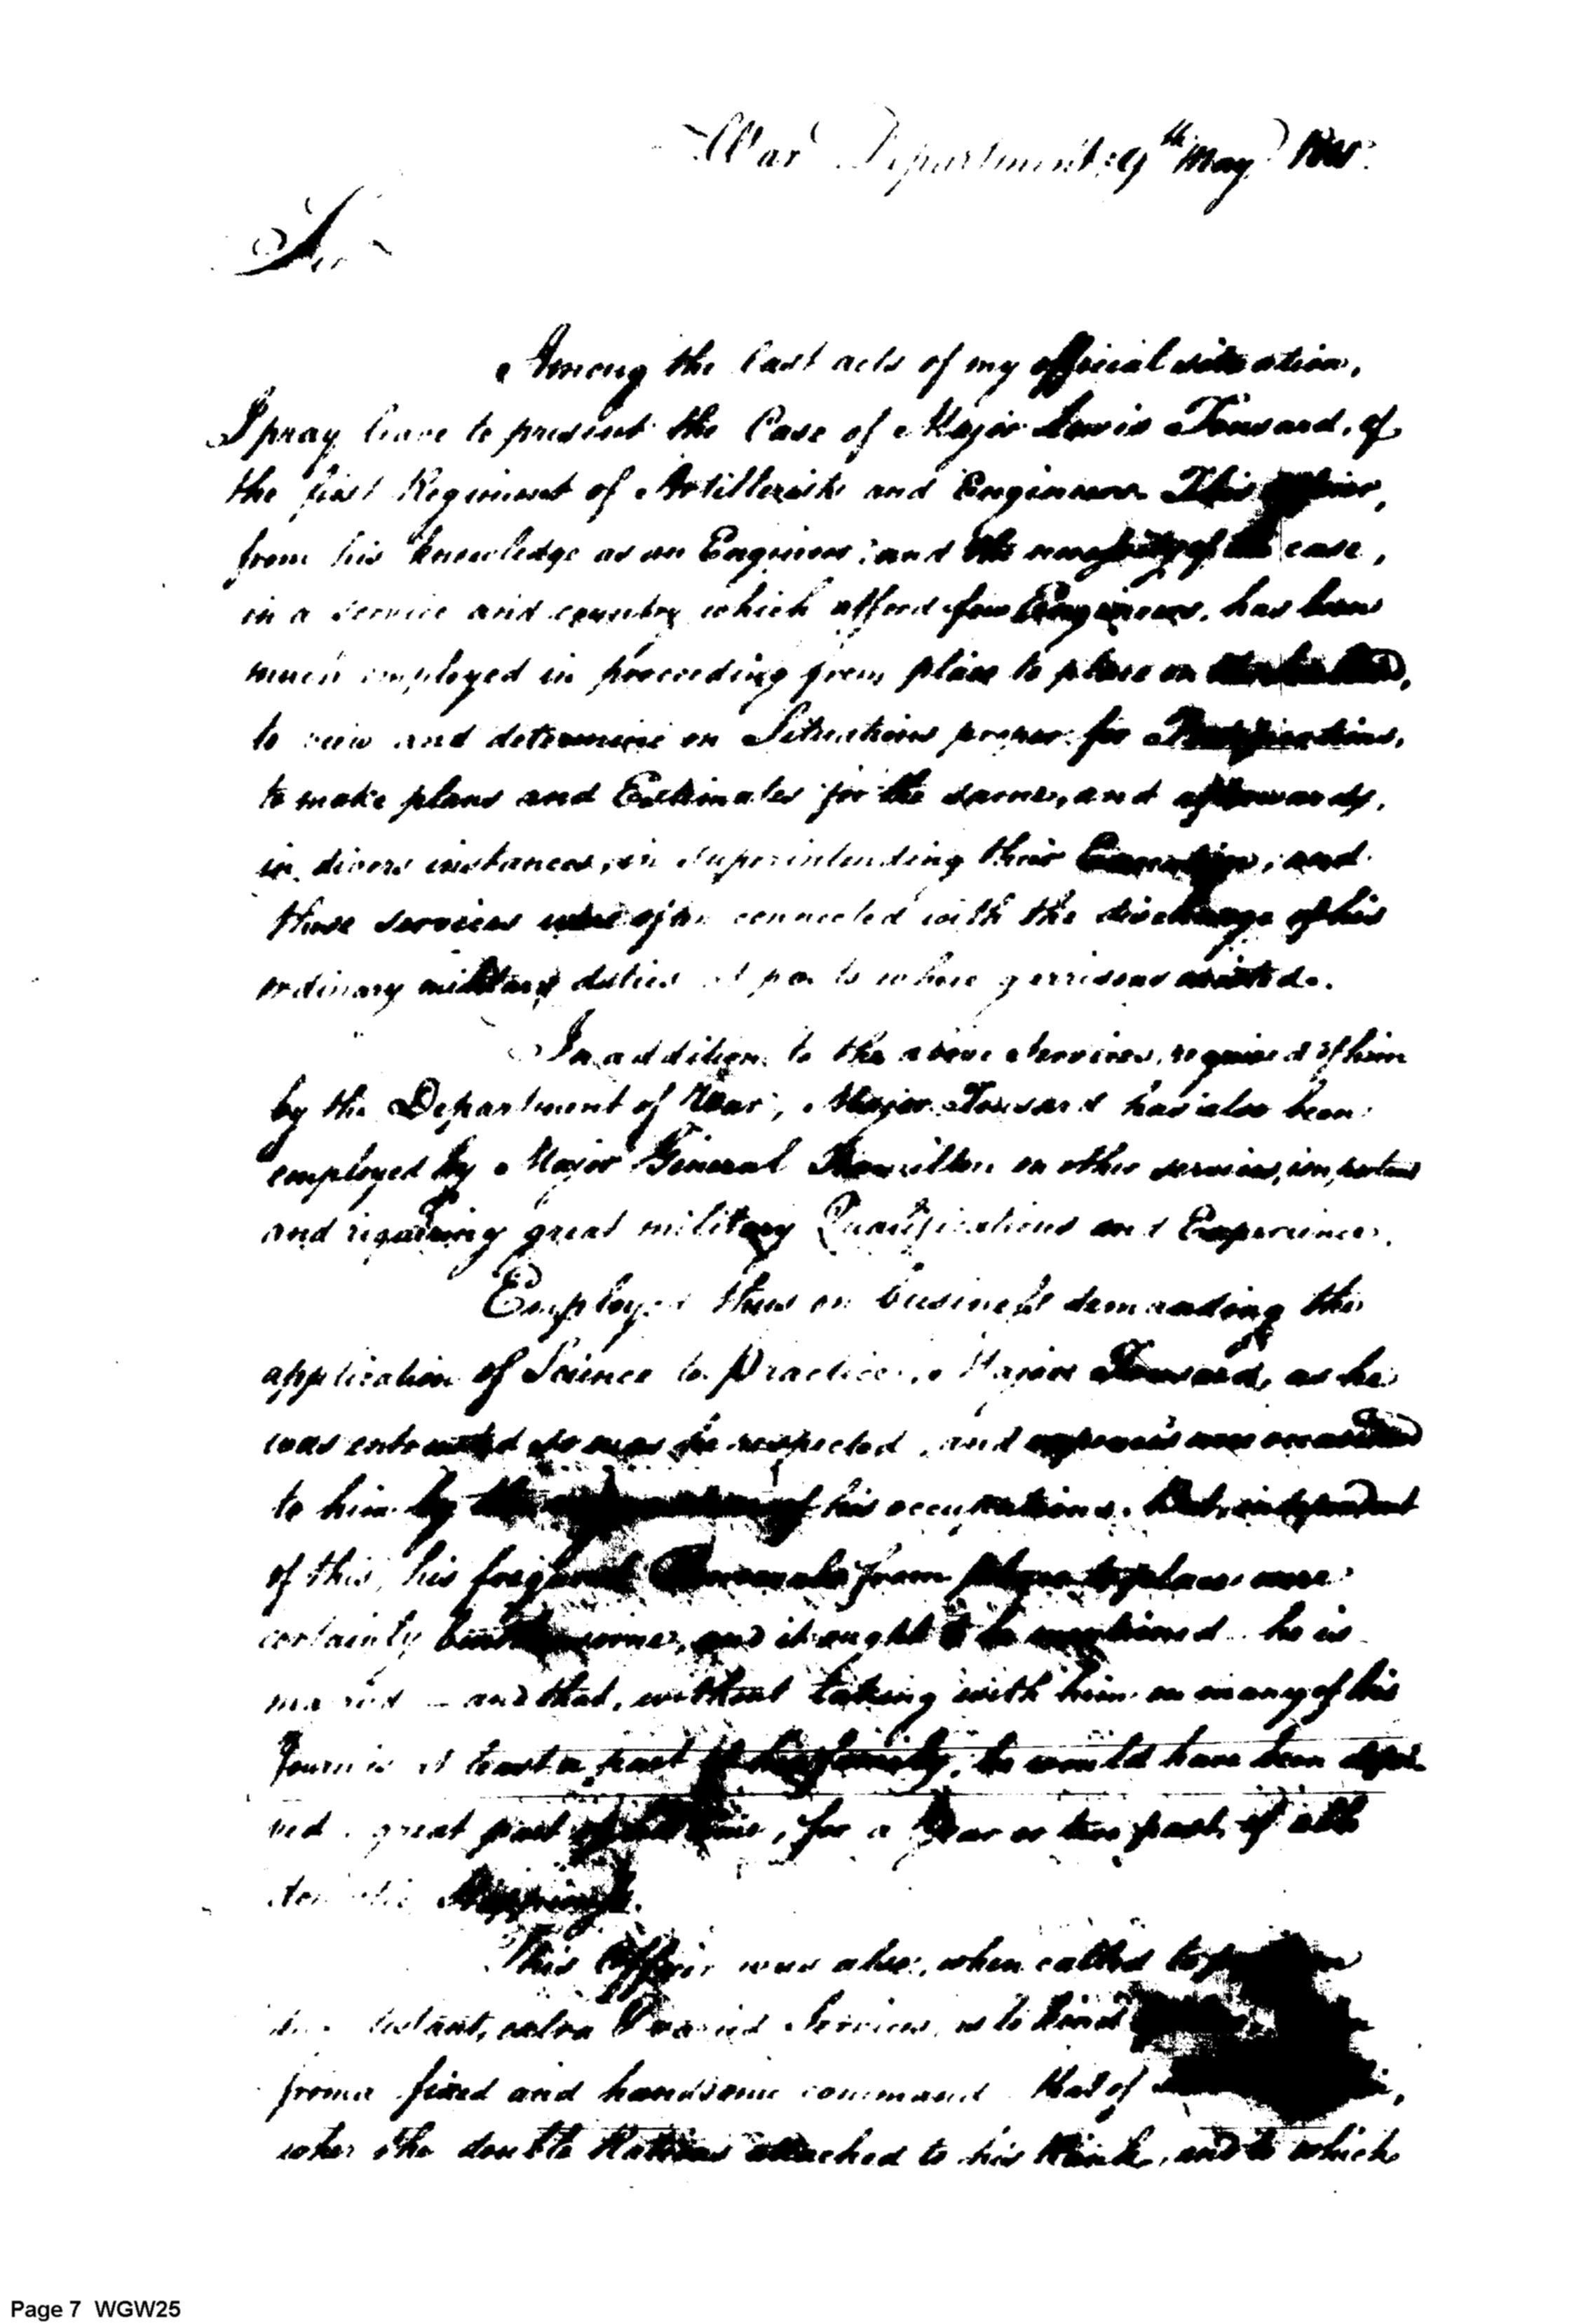 War Department, 9th May
Sir
Among the last acts of my official situation,
I pray leave to present the Case of Major Lewis Tousard, of
the first Regiment of Artillerists and Engineers. This officer,
from his knowledge as an Engineer; and the necessity of the case,
in a service and country which afford few Engineers, has been
much employed in proceeding from place to place on
to view and determine on Situations proper for Fortifications,
to make plans and Estimates for the same, and afterwards,
in divers instances, in superintending their Execution; and
these services were often connected with the discharge of his
ordinary military duties at posts where garrisons existed.
In addition to the above services, required of him
by the Department of War, Major Tousard has also been
employed by Major General Hamilton on other services, important
and requiring great military Qualifications and Experience.
Employed thus on business demanding the
application of Science to Practice, Major Tousard, as he
was entrusted so was he respected, and expences were occasioned
to him by the of his occupations. But, independent
of this, his frequent Removals from place to place were
certainly burthensome, and it ought to be mentioned he is
married – and that, without taking with him on many of his
Journies at least a part of his family, he would have been depri-
ved a great part of the time, for a Year or two past, of all
domestic Happiness.
This Officer was also, when called to perform
distant, extra & varied Services, as to kind
from a fixed and handsome command that of
where the double Rations attached to his Rank, and to which